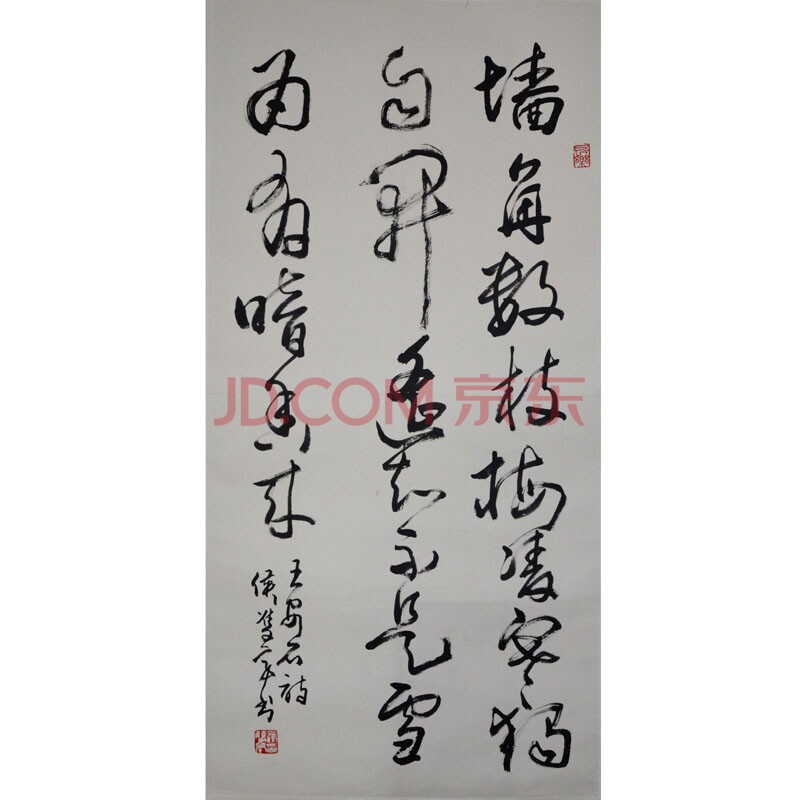 墙角数枝梅凌寒独
自開遥知不是雪
为有暗香来
王安石诗
侯双平书
JD.COM 京东